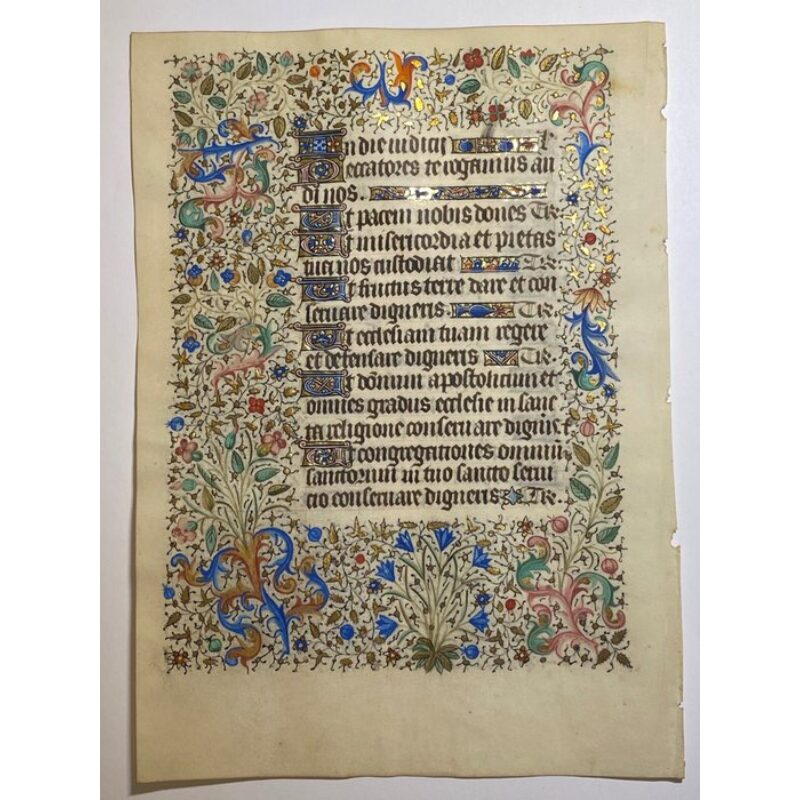 In die iudicii
Peccatores te rogamus au
di nos.
Ut pacem nobis dones TR.
Ut misericordia et pietas
tua nos custodiat TR.
Ut fructus terre dare et con
seruare digneris. TR.
Ut ecclesiam tuam regere
et defensare digneris TR.
Ut domnum apostolicum et
omnes gradus ecclesie in sanc
ta religione conseruare digneris t
Ut congregationes omnium
sanctorum in tuo sancto serui
tio conseruare digneris TR.